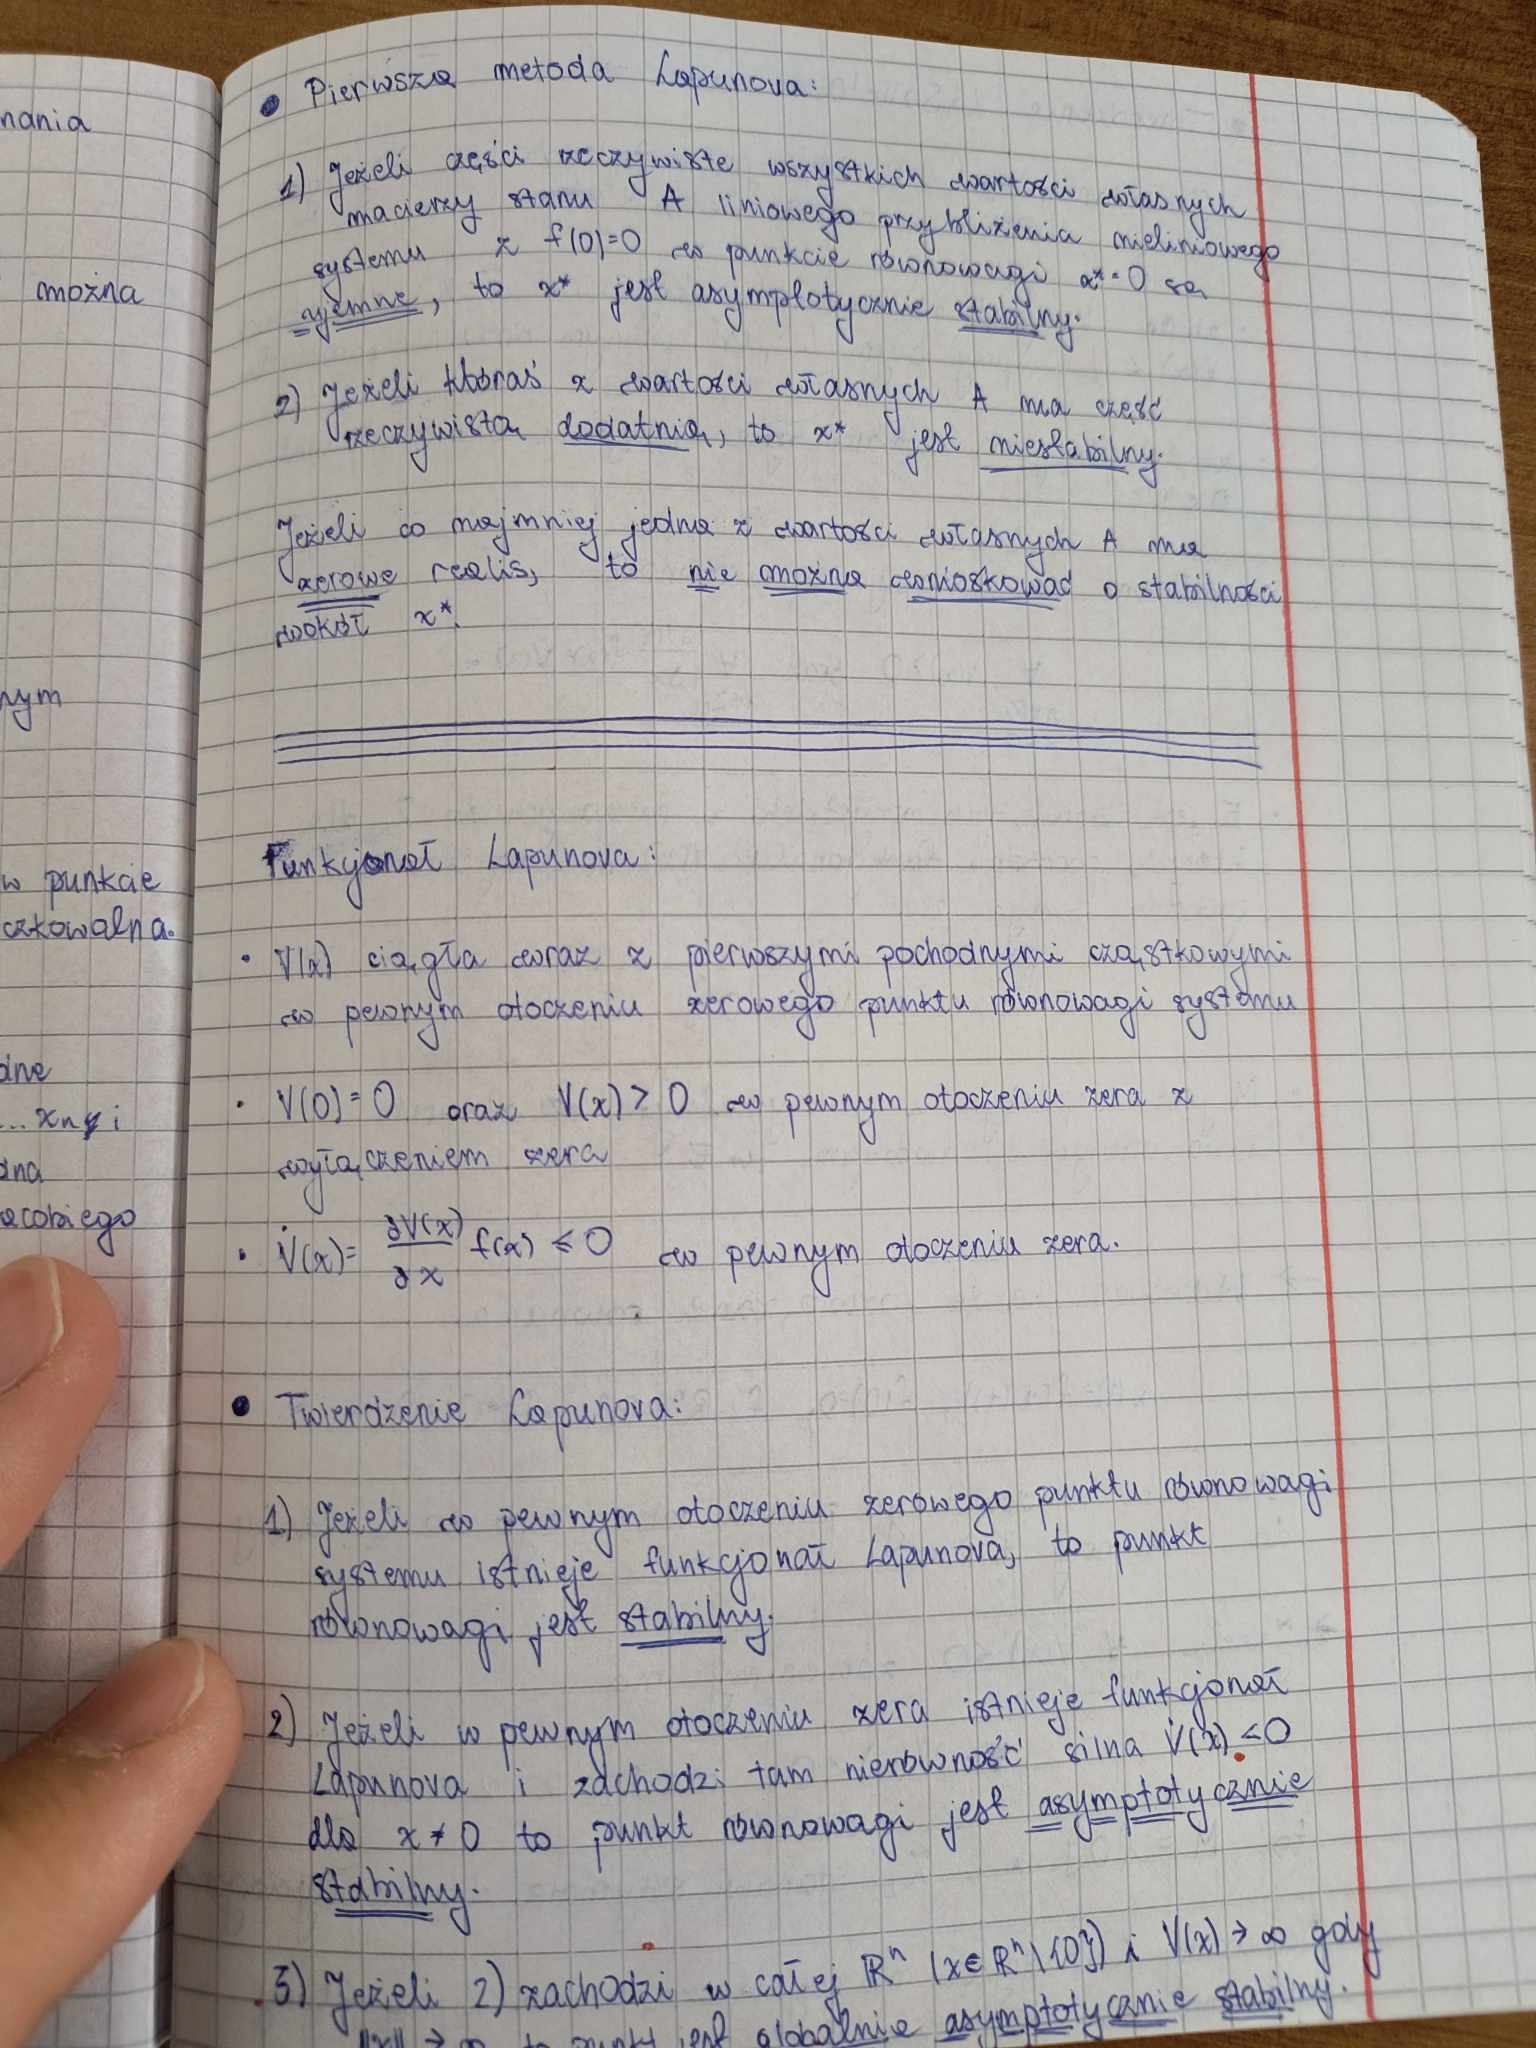 nania
można
nym
w punkcie
czkowalna.
dne
... xn i
dna
acobiego
• Pierwsza metoda Lapunova:
1) Jeżeli części rzeczywiste wszystkich wartości własnych
macierzy stanu A liniowego przybliżenia nieliniowego
systemu z f(0)=0 w punkcie równowagi x*=0 są
ujemne, to x* jest asymptotycznie stabilny.
2) Jeżeli któraś z wartości własnych A ma część
rzeczywistą dodatnią, to x* jest niestabilny.
Jeżeli co najmniej jedna z wartości własnych A ma
zerowe realis, to nie można wnioskować o stabilności
wokół x*.
Funkcjonał Lapunova:
• V(x) ciągła wraz z pierwszymi pochodnymi cząstkowymi
w pewnym otoczeniu zerowego punktu równowagi systemu
• V(0) = 0 oraz V(x) > 0 w pewnym otoczeniu zera z
wyłączeniem zera
• V̇(x) = ∂V(x)/∂x f(x) ≤ 0 w pewnym otoczeniu zera.
• Twierdzenie Lapunova:
1) Jeżeli w pewnym otoczeniu zerowego punktu równowagi
systemu istnieje funkcjonał Lapunova, to punkt
równowagi jest stabilny.
2) Jeżeli w pewnym otoczeniu zera istnieje funkcjonał
Lapunova i zachodzi tam nierówność silna V̇(x) < 0
dla x ≠ 0 to punkt równowagi jest asymptotycznie
stabilny.
3) Jeżeli 2) zachodzi w całej ℝⁿ (x∈ℝⁿ\{0}) i V(x) → ∞ gdy
||x|| → ∞ to punkt jest globalnie asymptotycznie stabilny.